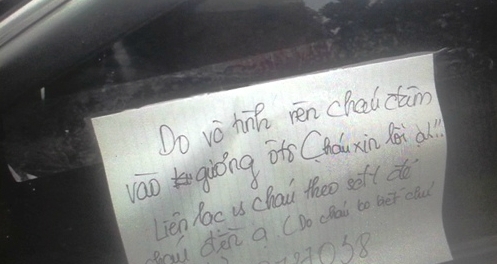 Do vô tình nên cháu đâm
vào gương ôtô (cháu xin lỗi ạ!!
Liên lạc vs cháu theo số đt để
cháu đền ạ (Do cháu ko biết chú
27058